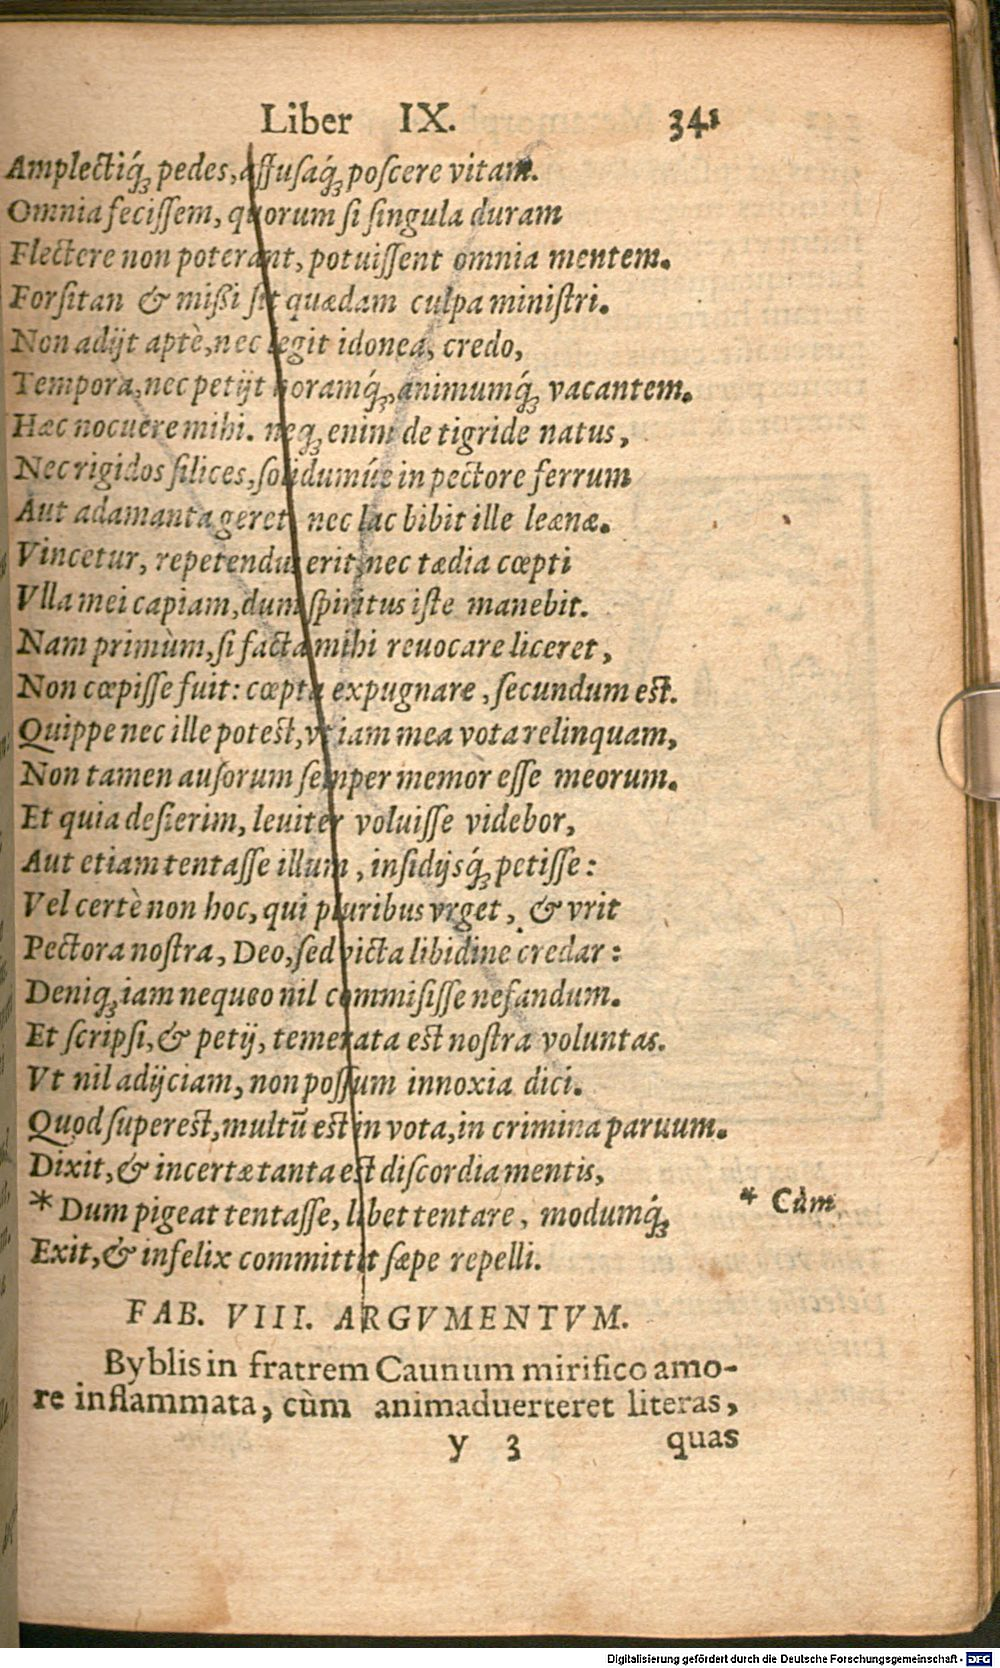 Liber IX. 341
Amplectiq́ꝫ pedes, affusaq́ꝫ poscere vitam.
Omnia fecissem, quorum si singula duram
Flectere non poterant, potuissent omnia mentem.
Forsitan & missi sit quædam culpa ministri.
Non adijt aptè, nec legit idonea, credo,
Tempora, nec petijt horamq́ꝫ, animumq́ꝫ vacantem.
Hæc nocuere mihi. neqꝫ enim de tigride natus,
Nec rigidos silices, solidumúe in pectore ferrum
Aut adamanta geret, nec lac bibit ille leænæ.
Vincetur, repetendus erit, nec tædia cœpti
Vlla mei capiam, dum spiritus iste manebit.
Nam primùm, si facta mihi reuocare liceret,
Non cœpisse fuit: cœpta expugnare, secundum est.
Quippe nec ille potest, vt iam mea vota relinquam,
Non tamen ausorum semper memor esse meorum.
Et quia desierim, leuiter voluisse videbor,
Aut etiam tentasse illum, insidijsq́ꝫ petisse:
Vel certè non hoc, qui pluribus vrget, & vrit
Pectora nostra, Deo, sed victa libidine credar:
Deniqꝫ iam nequeo nil commisisse nefandum.
Et scripsi, & petij, temerata est nostra voluntas.
Vt nil adijciam, non possum innoxia dici.
Quod superest, multũ est in vota, in crimina paruum.
Dixit, & incertæ tanta est discordia mentis,
* Dum pigeat tentasse, libet tentare, modumq́ꝫ * Cùm
Exit, & infelix committit sæpe repelli.
FAB. VIII. ARGVMENTVM.
Byblis in fratrem Caunum mirifico amo-
re inflammata, cùm animaduerteret literas,
y 3 quas
Digitalisierung gefördert durch die Deutsche Forschungsgemeinschaft - DFG